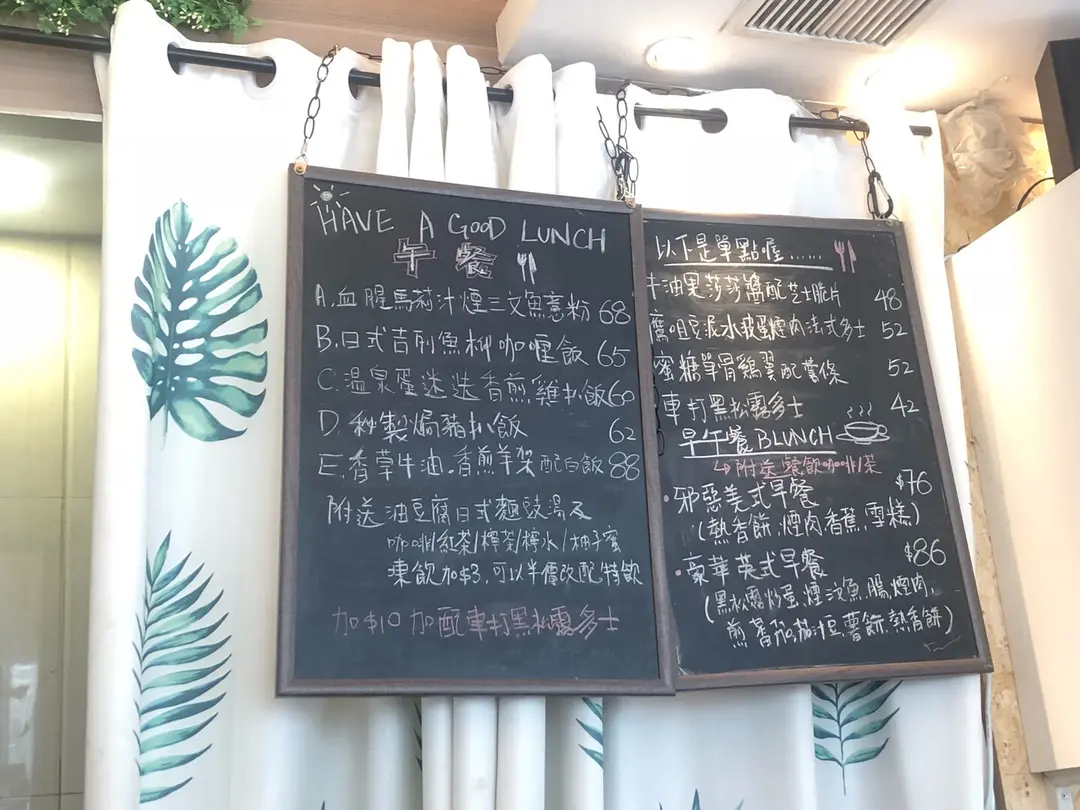 HAVE A GOOD LUNCH
午餐
A.血腥馬莉汁煙三文魚意粉 68
B.日式吉列魚柳咖喱飯 65
C.温泉蛋迷迭香煎雞扒飯 60
D.秘製焗豬扒飯 62
E.香草牛油.香煎羊架配白飯 88
附送油豆腐日式麵豉湯及
咖啡/紅茶/檸茶/檸水/柚子蜜
凍飲加$3,可以半價改配特飲
加$10加配車打黑松露多士
以下是單點喔......
牛油果莎莎醬配芝士脆片 48
鷹咀豆泥水波蛋煙肉法式多士 52
蜜糖單骨鷄翼配薯條 52
車打黑松露多士 42
早午餐 BLUNCH
附送 飲咖啡/茶
·邪惡美式早餐 $76
(熱香餅,煙肉香蕉,雪糕)
·豪華英式早餐 $86
(黑松露炒蛋,煙三文魚,腸,煙肉,
煎蕃茄,茄汁豆,薯餅,熱香餅)